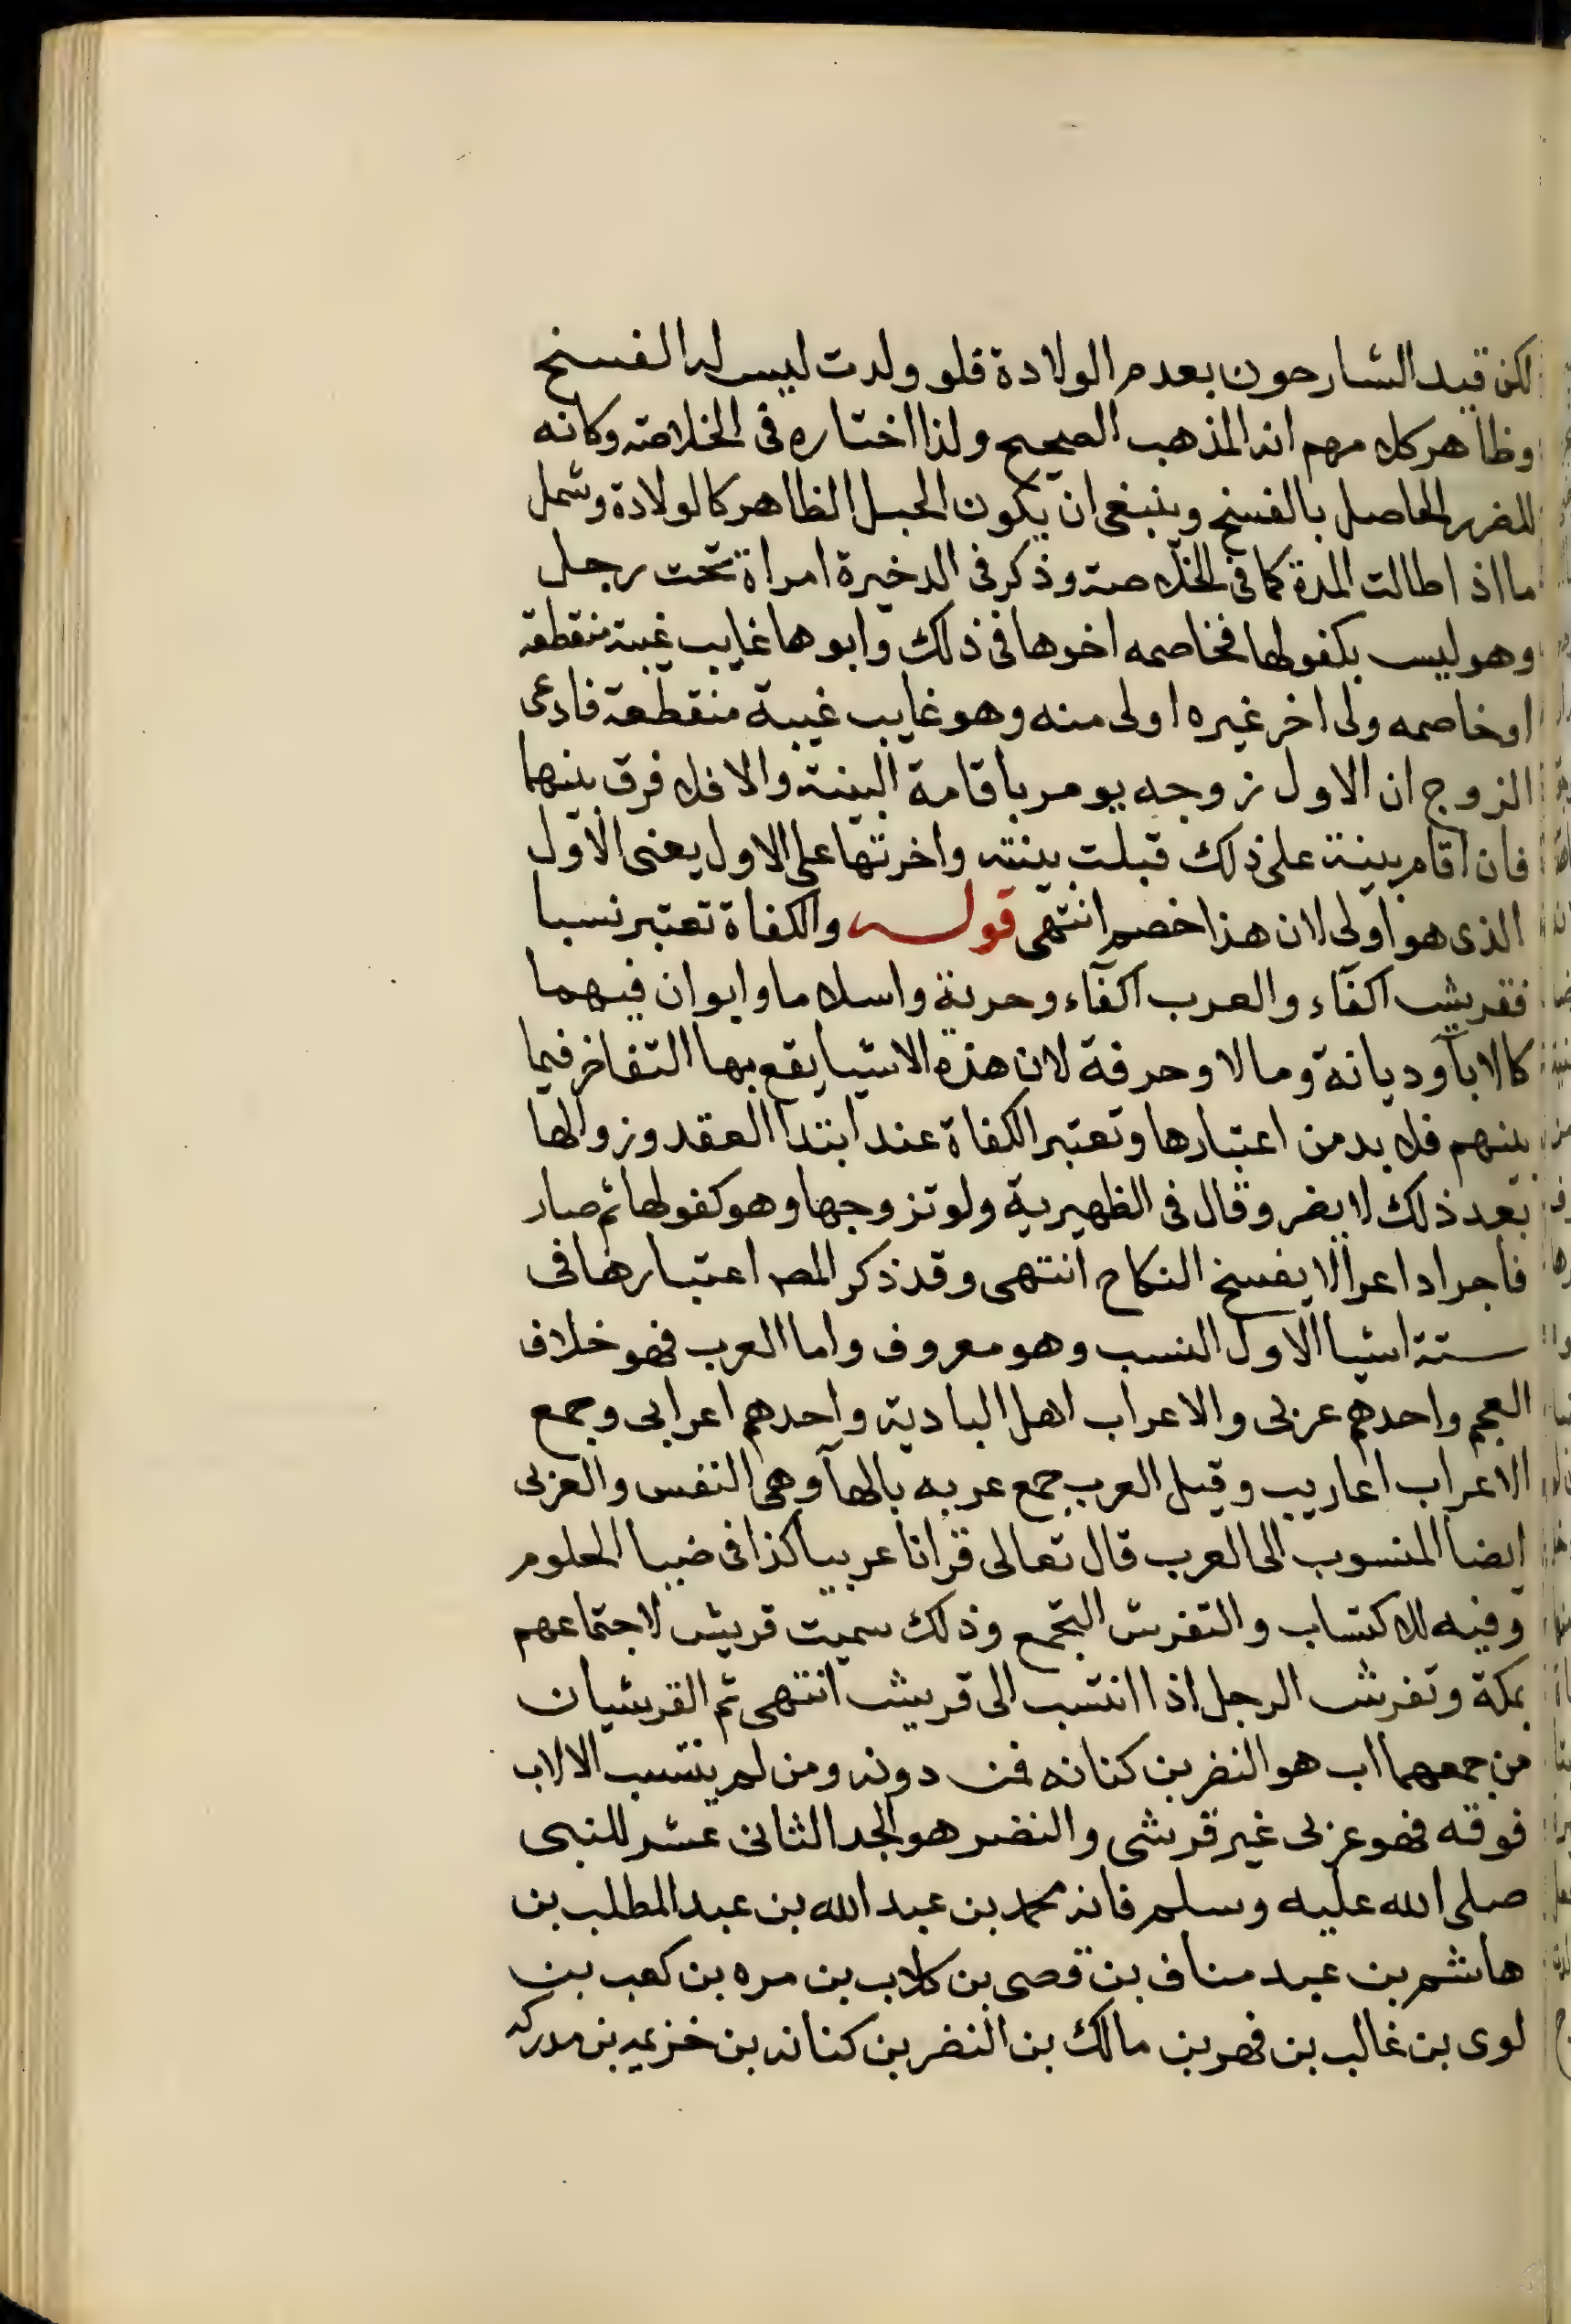 لكن قيد الشارحون بعدم الولادة فلو ولدت ليس له الفسخ
وظاهر كلامهم انه المذهب الصحيح ولذا اختاره في الخلاصة وكانه
للضرر الحاصل بالفسخ وينبغي ان يكون الحبل الظاهر كالولادة وشمل
ما اذا طالت المدة كما في الخلاصة وذكر في الدخيرة امراة تحت رجل
وهو ليس بكفولها فخاصمه اخوها في ذلك وابوها غايب غيبة منقطعة
او خاصمه ولى اخر غيره اولى منه وهو غايب غيبة منقطعة فادعى
الزوج ان الاول زوجه يومر باقامة البينة والا فلا فرق بينهما
فان اقام بينة على ذلك قبلت بينته واخرتها على الاول يعنى الاول
الذى هو اولى لان هذا خصم انتهى قوله والكفاة تعتبر نسبا
فقريش اكفاء والعرب اكفاء وحرية واسلاما وابوان فيهما
كالابآ وديانة ومالا وحرفة لان هذه الاشيا يقع بها التفاخر فيما
بينهم فلا بد من اعتبارها وتعتبر الكفاة عند ابتدا العقد وزوالها
بعد ذلك لا يضر وقال في الظهيرية ولو تزوجها وهو كفولها ثم صار
فاجرا داعرا لا يفسخ النكاح انتهى وقد ذكر المص اعتبارها في
ستة اشيا الاول النسب وهو معروف واما العرب فهو خلاف
العجم واحدهم عربى والاعراب اهل البادية واحدهم اعرابى وجمع
الاعراب اعاريب وقيل العرب جمع عربه بالهآ وهي النفس والعربى
ايضا المنسوب الى العرب قال تعالى قرانا عربيا كذا في ضيا الحلوم
وفيه للاكتساب والتقرش التجمع وذلك سميت قريش لاجتماعهم
بمكة وتقرش الرجل اذا انتسب الى قريش انتهى ثم القرشيان
من جمعهما اب هو النضر بن كنانه فمن دونه ومن لم ينتسب الا لاب
فوقه فهو عربى غير قرشى والنضر هو الجد الثانى عشر للنبى
صلى الله عليه وسلم فانه محمد بن عبد الله بن عبد المطلب بن
هاشم بن عبد مناف بن قصى بن كلاب بن مره بن كعب بن
لوى بن غالب بن فهر بن مالك بن النضر بن كنانه بن خزيمه بن مدركه